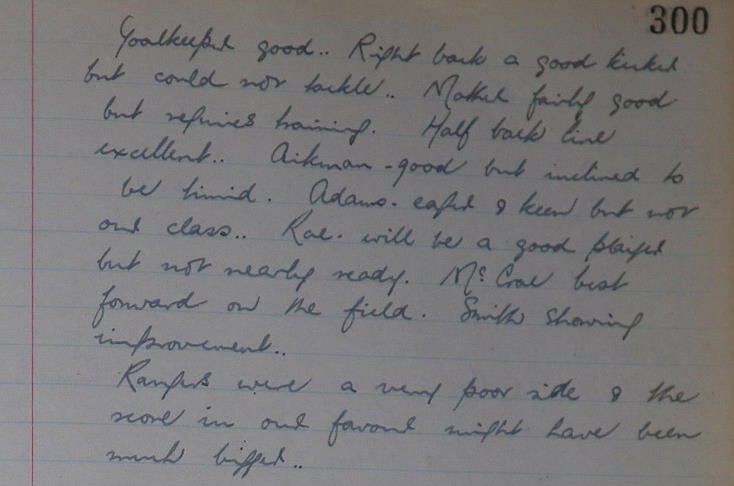 300
Goalkeeper good.. Right back a good kicker
but could not tackle.. Mather fairly good
but requires training. Half back line
excellent.. Aikman - good but inclined to
be timid. Adams - eager & keen but not
our class.. Rae - will be a good player
but not nearly ready. McCrae best
forward on the field. Smith showing
improvement..
Rangers were a very poor side & the
score in our favour might have been
much bigger..